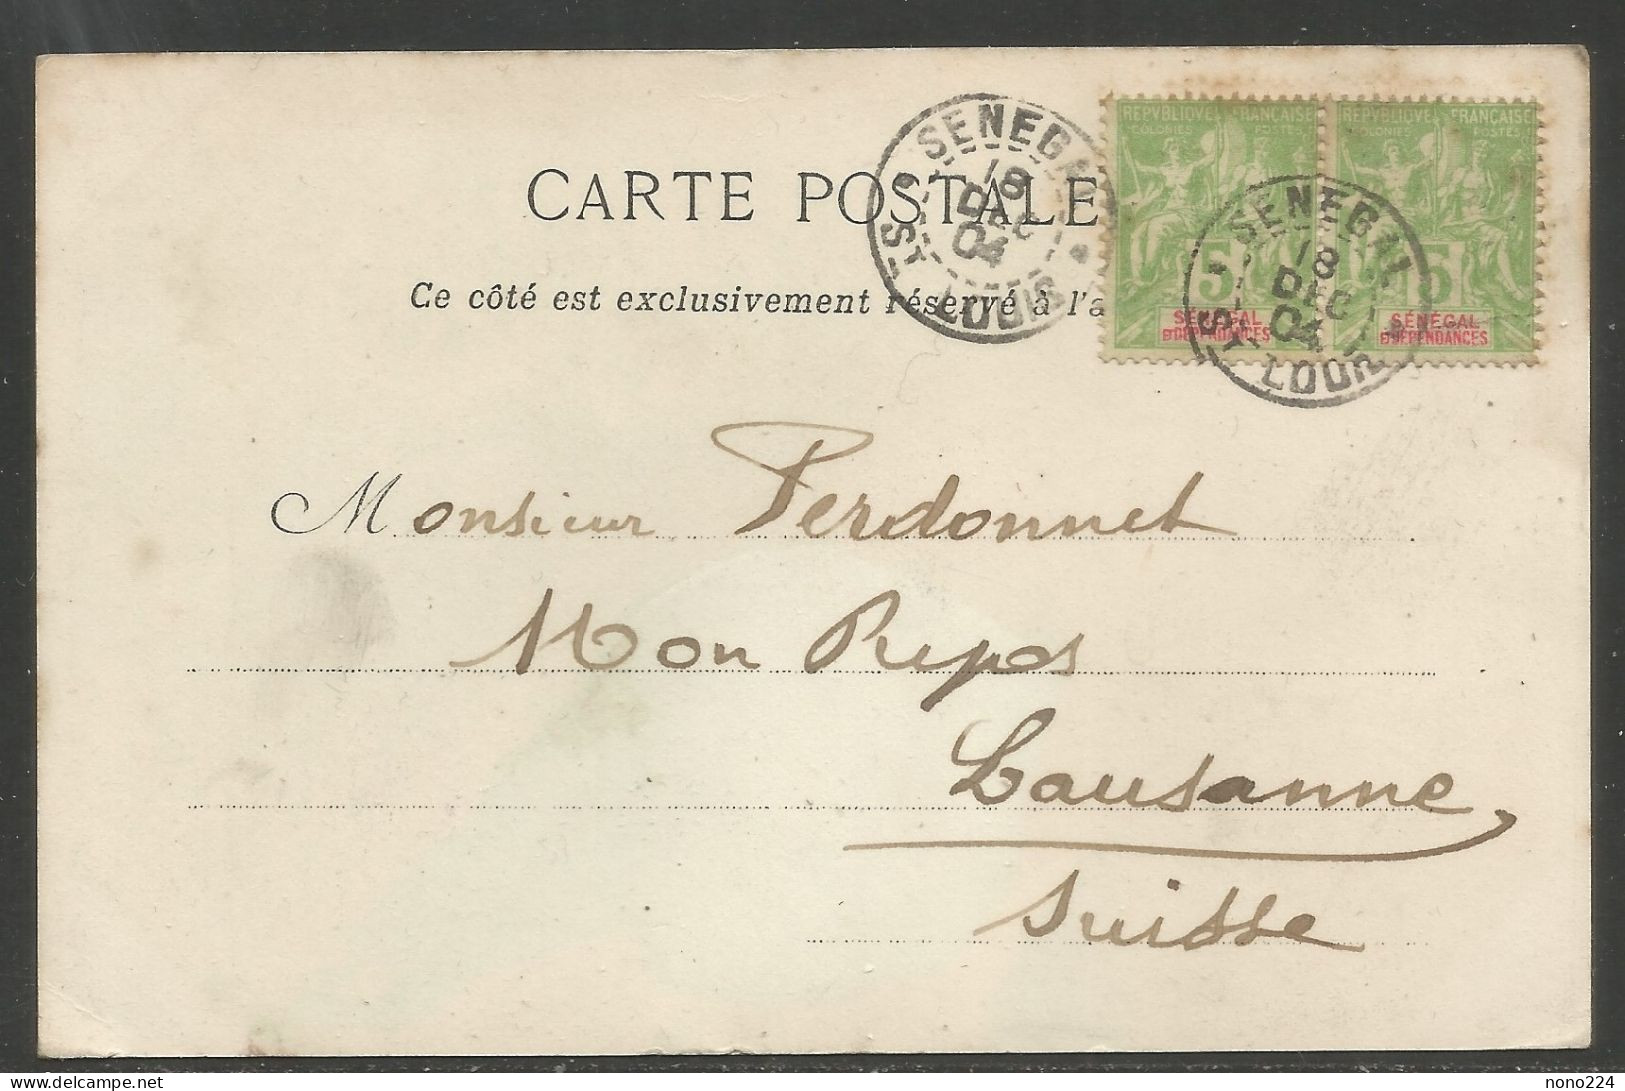 CARTE POSTALE
Ce côté est exclusivement réservé à l'a
SENEGAL
18
DEC
04
ST LOUIS
REPVBLIQVE FRANÇAISE
COLONIES POSTES
5
SÉNÉGAL
ET DÉPENDANCES
REPVBLIQVE FRANÇAISE
COLONIES POSTES
5
SÉNÉGAL
ET DÉPENDANCES
SENEGAL
18
DEC
04
ST LOUIS
Monsieur Perdonnet
Mon Repos
Lausanne,
Suisse
delcampe.net
nono224